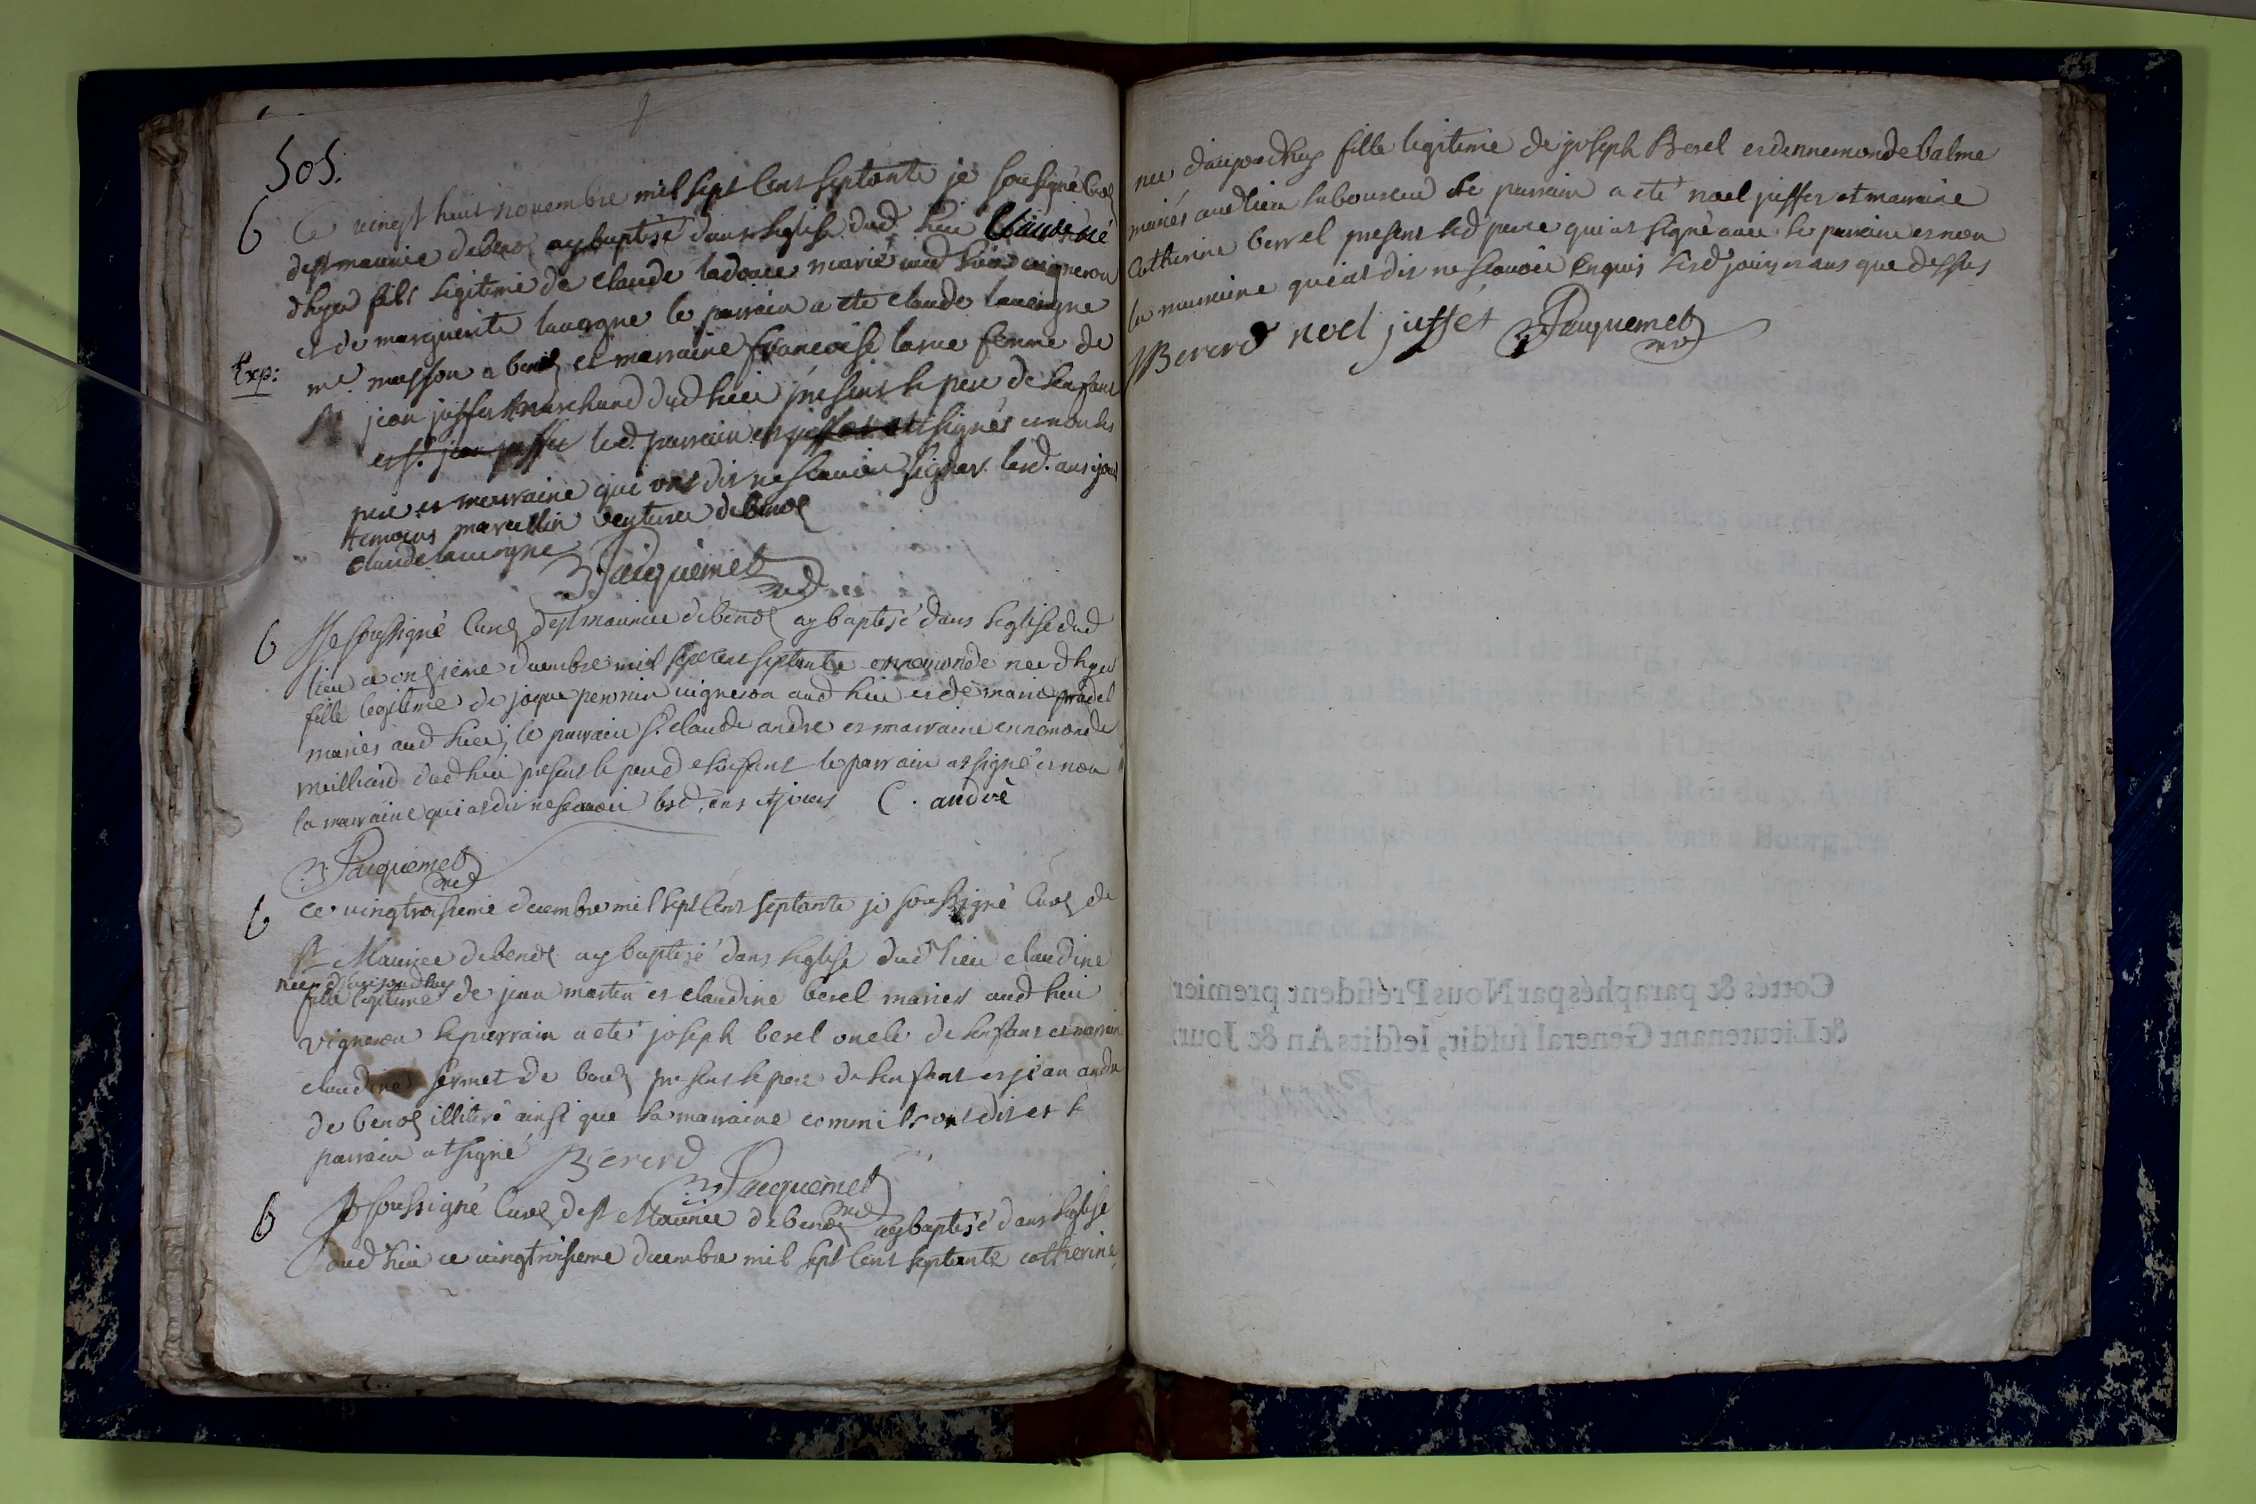 505.
B Ce vingt huit novembre mil sept cent septante je sousigné Curé
de st maurice de benot ay baptisé dans leglise dud. lieu Claude né
dhyer fils legitime de claude ladouce marié aud lieu vigneron
et de marguerite lauvergne le parrain a ete claude lauvergne
Exp: me. masson a benot et marraine francoise larue femme de
sr jean juffet marchand dud lieu présent le pere de lenfant
et sr. jean juffet led. parrain et juffet ont signés et non les
pere et marraine qui ont dit ne scavoir signer. lesd. an et jour
temoins marcellin veyture de benot
Claude lauvergne Jacquemet curé
B Je soussigné Curé de st maurice de benot ay baptisé dans leglise dud
lieu ce onzieme decembre mil sept cent septante ennemonde née dhyer
fille legitime de jaque perrin vigneron aud lieu et de marie pradel
mariés aud lieu, le parrain sr. claude andre et marraine ennemonde
milliard dud lieu présent le pere de lenfant le parrain at signé et non
la marraine qui at dit ne scavoir lesd. ans et jours C. andrè
Jacquemet curé
B Ce vingtroisieme decembre mil sept cent septante je soussigné Curé de
st Maurice de benot ay baptisé dans leglise dud lieu claudine
née d'aujourdhuy
fille legitime de jean martin et claudine berel mariés aud lieu
vigneron le parrain a ete joseph berel oncle de lenfant et marraine
claudine sermet de benot présent le pere de lenfant et jean andre
de benot illiteré ainsi que la marraine comm ils ont dit et le
parrain at signé Bererd
Jacquemet curé
B Je soussigné Curé de st Maurice de benot ay baptisé dans leglise
dud lieu ce vingtroisieme decembre mil sept cent septante catherine
née daujourdhuy fille legitime de joseph Berel et dennemonde balme
mariés aud lieu laboureur le parrain a eté noel juffet et marraine
Catherine berrel présent led pere qui at signé avec le parrain et non
la marraine qui at dit ne scavoir enquis lesd jours et ans que dessus
JBererd noel juffét Jacquemet curé
Cottés & paraphés par Nous Président premier
& Lieutenant General susdit, lesdits An & Jour.